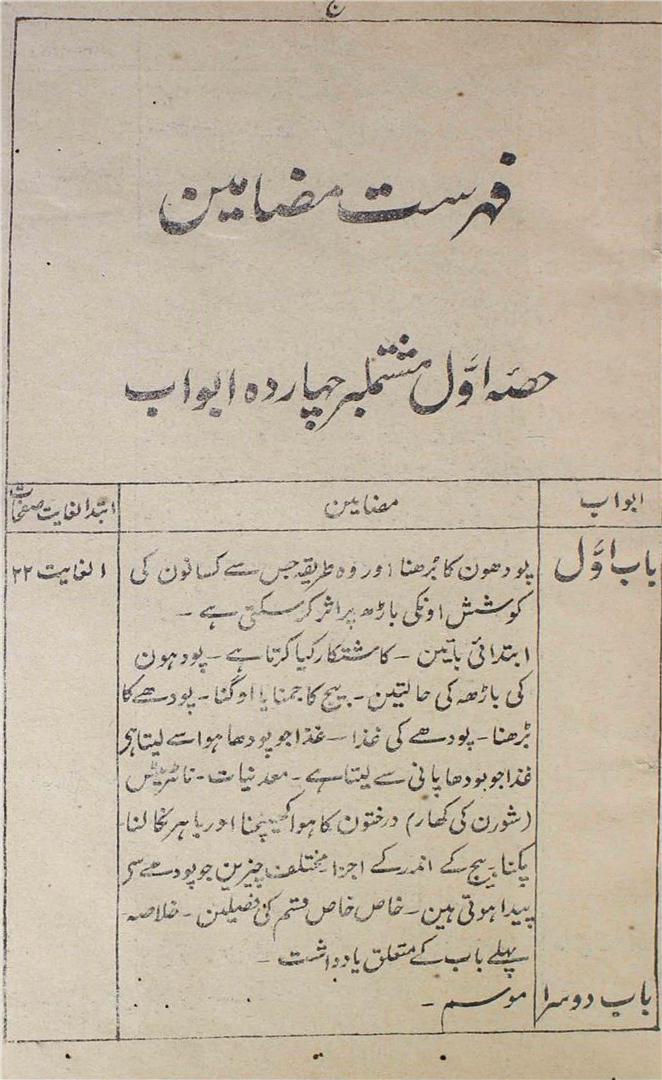 ج
فہرست مضامین
حصّہ اوّل مشتملبر چہاردہ ابواب
ابواب
مضامین
ابتدا لغایت صفحات
باب اوّل
پودھون کا بڑھنا اور وہ طریقہ جس سے کسانون کی
ا لغایت ۲۲
کوشش اونکی باڑھ پر اثر کرسکتی ہے ۔
ابتدائی باتین ۔ کاشتکار کیا کرتا ہے ۔ پودہون
کی باڑھ کی حالتین ۔ بیج کا جمنا یا اوگنا ۔ پودھے کا
بڑھنا ۔ پودھے کی غذا ۔ غذا جو پودھا ہوا سے لیتا ہی
غذا جو پودھا پانی سے لیتا ہے ۔ معدنیات ۔ نائٹریٹس
(شورن کی کھار) درختون کا ہوا کھینچنا اور باہر نکالنا ۔
پکنا ۔ بیج کے اندر کے اجزا مختلف چیزین جو پودھے سی
پیدا ہوتی ہین ۔ خاص خاص قسم کی فصیلین ۔ خلاصہ
پہلے باب کے متعلق یادداشت ۔
باب دوسرا
موسم ۔